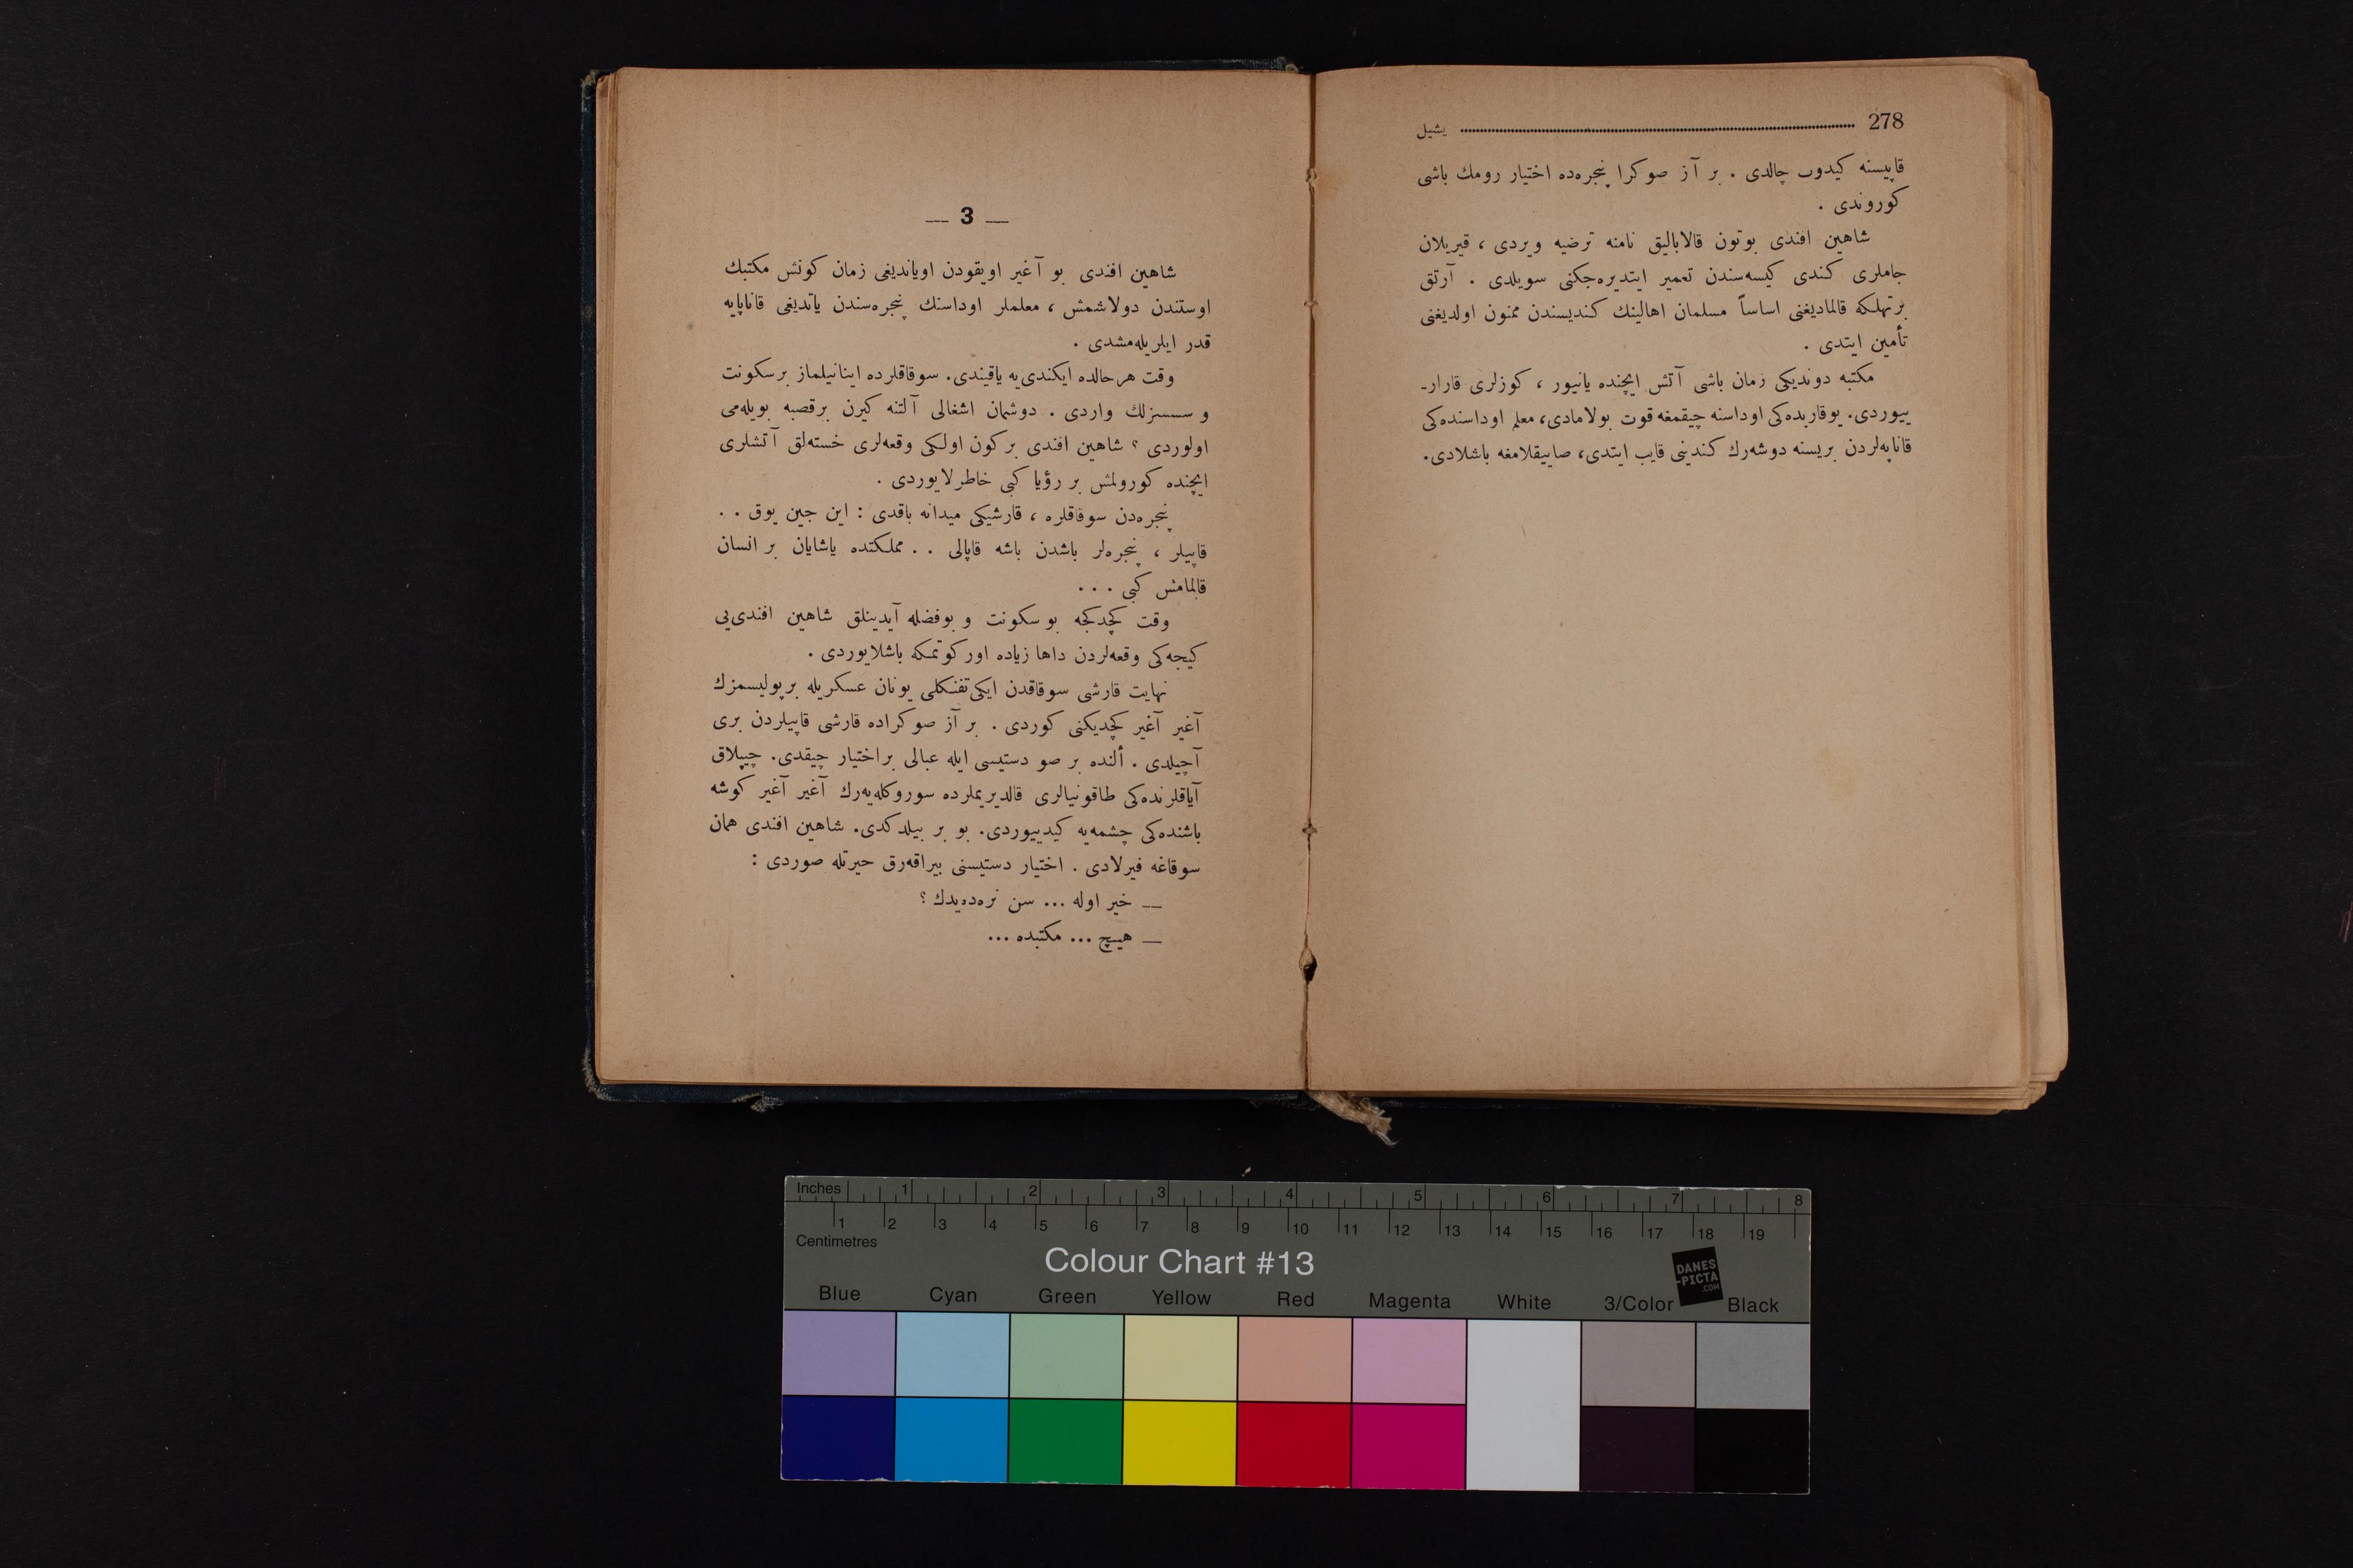 278 یشیل
قاپیسنه کیدوب چالدی . بر آز صوکرا پنجره‌ده اختیار رومك باشی
کوروندی .
شاهین افندی بوتون قالابالیق نامنه ترضیه ویردی ، قیریلان
جاملری کندی کیسه‌سندن تعمیر ایتدیره‌جکنی سویلدی . آرتق
برتهلکه قالمادیغنی اساساً مسلمان اهالینك کندیسندن ممنون اولدیغنی
تأمین ایتدی .
مکتبه دوندیکی زمان باشی آتش ایچنده یانیور ، کوزلری قارار-
ییوردی. یوقاریده‌کی اوداسنه چیقمغه قوت بولامادی، معلم اوداسنده‌کی
قاناپه‌لردن بریسنه دوشه‌رك کندینی قایب ایتدی، صاییقلامغه باشلادی.
— 3 —
شاهین افندی بو آغیر اویقودن اویاندیغی زمان کونش مکتبك
اوستندن دولاشمش ، معلملر اوداسنك پنجره‌سندن یاتدیغی قاناپایه
قدر ایلریله‌مشدی .
وقت هرحالده ایکندی‌یه یاقیندی. سوقاقلرده اینانیلماز برسکونت
و سسسزلك واردی . دوشمان اشغالی آلتنه کیرن برقصبه بویله‌می
اولوردی ؟ شاهین افندی برکون اولکی وقعه‌لری خسته‌لق آتشلری
ایچنده کورولمش بر رؤیا کبی خاطرلایوردی .
پنجره‌دن سوقاقلره ، قارشیکی میدانه باقدی : این جین یوق . .
قاپیلر ، پنجره‌لر باشدن باشه قاپالی . . مملکتده یاشایان بر انسان
قالمامش کبی . . .
وقت کچدکجه بو سکونت و بوفضله آیدینلق شاهین افندی‌یی
کیجه‌کی وقعه‌لردن داها زیاده اورکوتمکه باشلایوردی .
نهایت قارشی سوقاقدن ایکی تفنکلی یونان عسکریله برپولیسمزك
آغیر آغیر کچدیکنی کوردی . بر آز صوکراده قارشی قاپیلردن بری
آچیلدی . ألنده بر صو دستیسی ایله عبالی براختیار چیقدی. چیپلاق
آیاقلرنده‌کی طاقونیالری قالدیریملرده سوروکله‌یه‌رك آغیر آغیر کوشه
باشنده‌کی چشمه‌یه کیدییوردی. بو بر بیلدکدی. شاهین افندی همان
سوقاغه فیرلادی . اختیار دستیسنی بیراقه‌رق حیرتله صوردی :
— خیر اوله ... سن نره‌ده‌یدك ؟
— هیچ ... مکتبده ...
Inches 1 2 3 4 5 6 7 8
1 2 3 4 5 6 7 8 9 10 11 12 13 14 15 16 17 18 19
Centimetres
Colour Chart #13
DANES
-PICTA
.COM
Blue Cyan Green Yellow Red Magenta White 3/Color Black